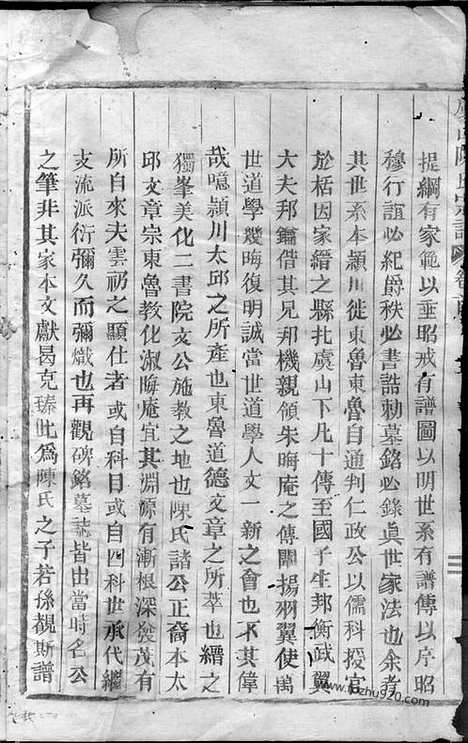 提綱有家範以垂昭戒有譜圖以明世系有譜傳以序昭
穆行誼必紀爵秩必書誥勅墓銘必錄真世家法也余考
其世系本潁川徙東魯東魯自通判仁政公以儒科授官
於栝因家縉之縣北虞山下凡十傳至國子生邦衡武翼
大夫邦鑰偕其兄邦機親領朱晦庵之傳闡揚羽翼使萬
世道學幾晦復明誠當世道學人文一新之會也不其偉
哉噫潁川太邱之所產也東魯道德文章之所萃也縉之
獨峯美化二書院文公施教之地也陳氏諸公正裔本太
邱文章宗東魯教化淑晦庵宜其淵源有漸根深發茂有
所自來夫雲礽之顯仕者或自科目或自四科世承代繼
支流派衍彌久而彌熾也再觀碑銘墓誌皆出當時名公
之筆非其家本文獻曷克臻此為陳氏之子若孫覩斯譜
www.fozhu920.com